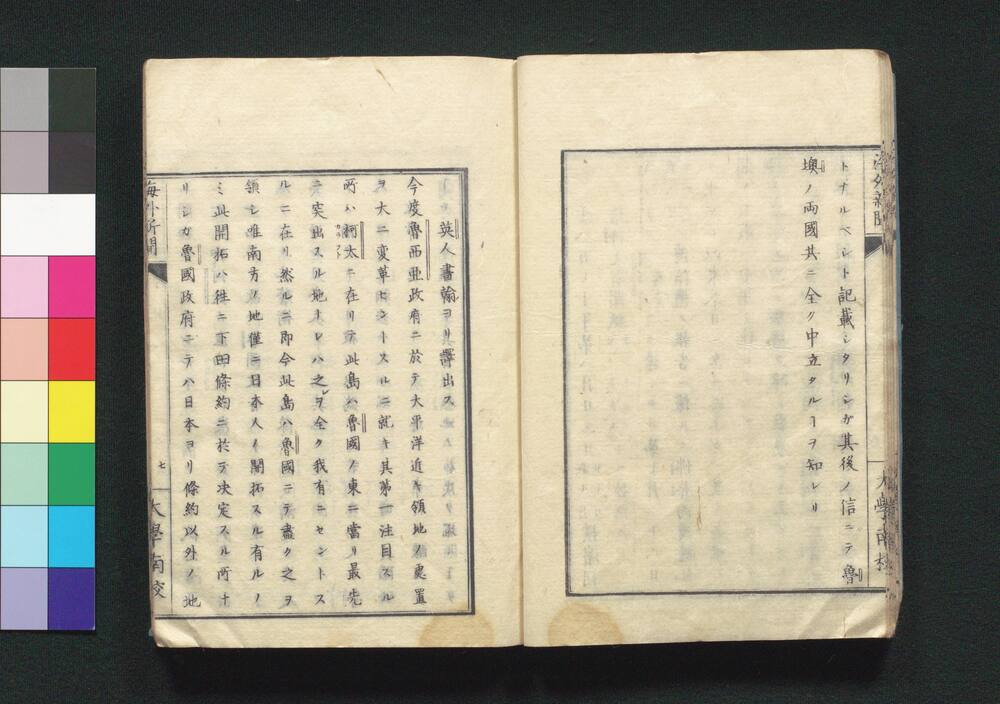 海外新聞
トナルベシト記載シタリシガ其後ノ信ニテ魯
墺ノ両國共ニ全ク中立タルヿヲ知レリ
大學南校
英人書翰ヨリ譯出ス
今度魯西亜政府ニ於テ大平洋近キ領地ノ處置
ヲ大ニ変革セントスルニ就キ其第一注目スル
所ハ柯太ニ在リテ此島ハ魯國ノ東ニ當リ最先
ニ突出スル地ナレハ之ヲ全ク我有ニセントス
ルニ在リ然ルニ即今此島ハ魯國ニテ盡ク之ヲ
領シ唯南方ノ地僅ニ日本人ノ開拓スル有ルノ
ミ此開拓ハ往ニ下田條約ニ於テ决定スル所ナ
リシガ魯國政府ニテハ日本ヨリ條約以外ノ地
海外新聞
七
大學南校